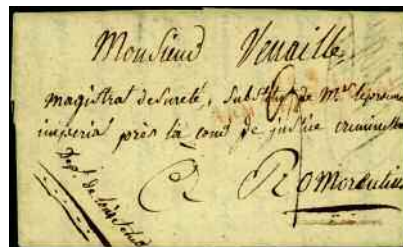 Monsieur Venaille
magistrat de sureté, Substitut de Mr le procureur
imperial près la cour de justice criminelle
A Romorantin
Dept. de Loir et Cher